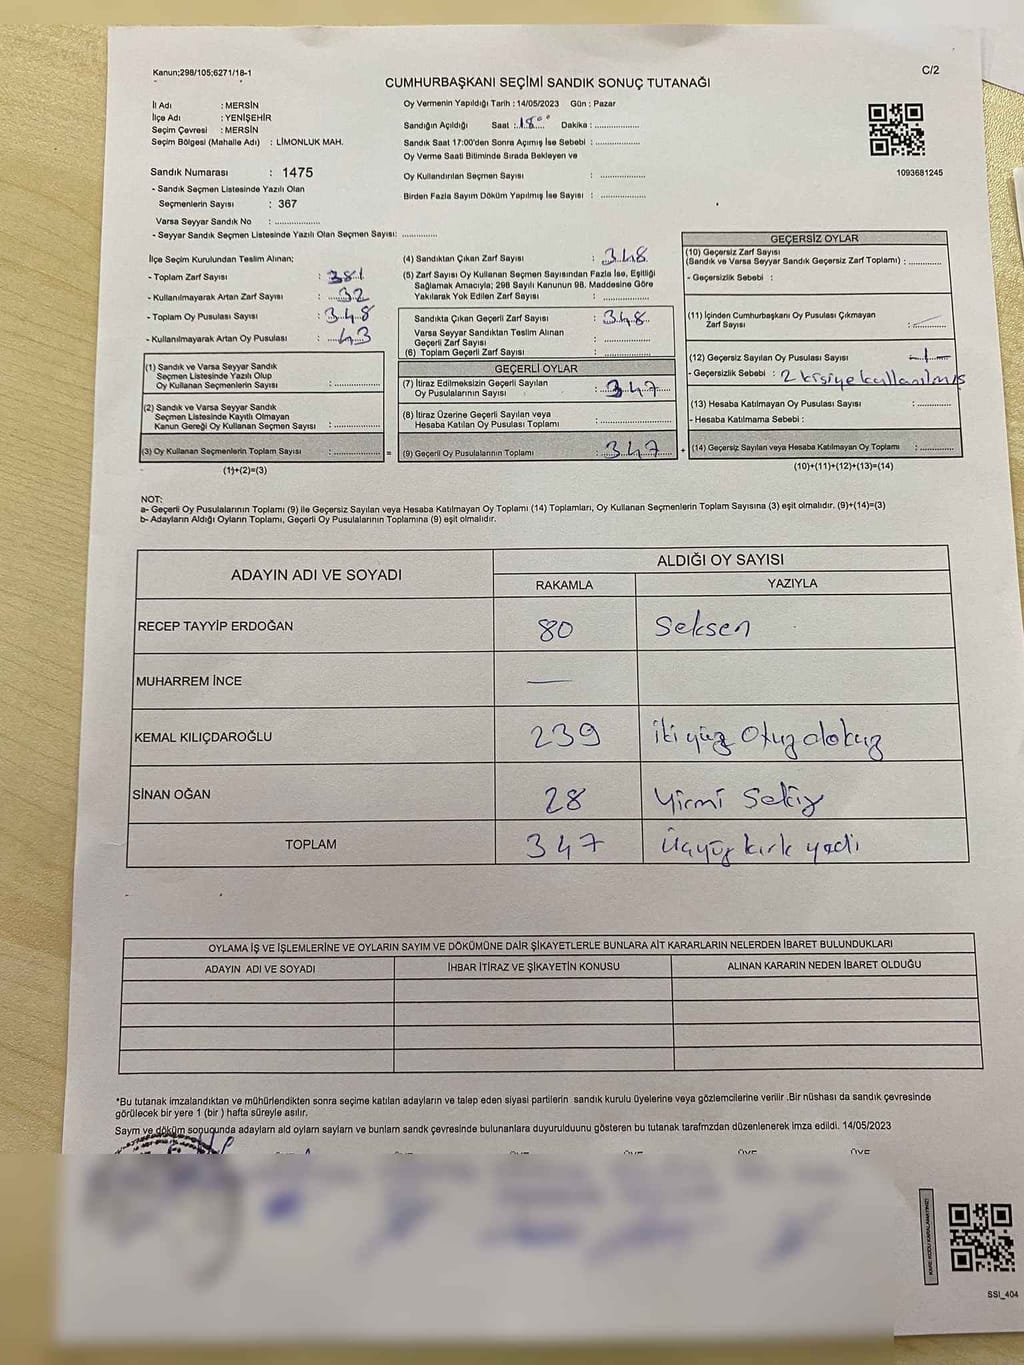 Kanun;298/105;6271/18-1
C/2
CUMHURBAŞKANI SEÇİMİ SANDIK SONUÇ TUTANAĞI
İl Adı : MERSİN
İlçe Adı : YENİŞEHİR
Seçim Çevresi : MERSİN
Seçim Bölgesi (Mahalle Adı) : LİMONLUK MAH.
Sandık Numarası : 1475
- Sandık Seçmen Listesinde Yazılı Olan
Seçmenlerin Sayısı : 367
Varsa Seyyar Sandık No : ..................
- Seyyar Sandık Seçmen Listesinde Yazılı Olan Seçmen Sayısı: .............
Oy Vermenin Yapıldığı Tarih : 14/05/2023 Gün : Pazar
Sandığın Açıldığı Saat : 18°° Dakika : ..................
Sandık Saat 17:00'den Sonra Açımış İse Sebebi : ..................
Oy Verme Saati Bitiminde Sırada Bekleyen ve
Oy Kullandırılan Seçmen Sayısı : ..................
Birden Fazla Sayım Döküm Yapılmış İse Sayısı : ..................
1093681245
İlçe Seçim Kurulundan Teslim Alınan;
- Toplam Zarf Sayısı : 381
- Kullanılmayarak Artan Zarf Sayısı : 32
- Toplam Oy Pusulası Sayısı : 348
- Kullanılmayarak Artan Oy Pusulası : 43
(1) Sandık ve Varsa Seyyar Sandık
Seçmen Listesinde Yazılı Olup
Oy Kullanan Seçmenlerin Sayısı : ..................
(2) Sandık ve Varsa Seyyar Sandık
Seçmen Listesinde Kayıtlı Olmayan
Kanun Gereği Oy Kullanan Seçmen Sayısı : ..................
(3) Oy Kullanan Seçmenlerin Toplam Sayısı : .................. =
(1)+(2)=(3)
(4) Sandıktan Çıkan Zarf Sayısı : 348
(5) Zarf Sayısı Oy Kullanan Seçmen Sayısından Fazla İse, Eşitliği
Sağlamak Amacıyla; 298 Sayılı Kanunun 98. Maddesine Göre
Yakılarak Yok Edilen Zarf Sayısı : ..................
Sandıkta Çıkan Geçerli Zarf Sayısı : 348
Varsa Seyyar Sandıktan Teslim Alınan
Geçerli Zarf Sayısı : ..................
(6) Toplam Geçerli Zarf Sayısı : ..................
GEÇERLİ OYLAR
(7) İtiraz Edilmeksizin Geçerli Sayılan
Oy Pusulalarının Sayısı : 347
(8) İtiraz Üzerine Geçerli Sayılan veya
Hesaba Katılan Oy Pusulası Toplamı : ..................
(9) Geçerli Oy Pusulalarının Toplamı : 347 +
GEÇERSİZ OYLAR
(10) Geçersiz Zarf Sayısı
(Sandık ve Varsa Seyyar Sandık Geçersiz Zarf Toplamı) : .............
- Geçersizlik Sebebi :
(11) İçinden Cumhurbaşkanı Oy Pusulası Çıkmayan
Zarf Sayısı : —
(12) Geçersiz Sayılan Oy Pusulası Sayısı -1-
- Geçersizlik Sebebi : 2 kişiye kullanılmış
(13) Hesaba Katılmayan Oy Pusulası Sayısı : .............
- Hesaba Katılmama Sebebi :
(14) Geçersiz Sayılan veya Hesaba Katılmayan Oy Toplamı : .............
(10)+(11)+(12)+(13)=(14)
NOT:
a- Geçerli Oy Pusulalarının Toplamı (9) ile Geçersiz Sayılan veya Hesaba Katılmayan Oy Toplamı (14) Toplamları, Oy Kullanan Seçmenlerin Toplam Sayısına (3) eşit olmalıdır. (9)+(14)=(3)
b- Adayların Aldığı Oyların Toplamı, Geçerli Oy Pusulalarının Toplamına (9) eşit olmalıdır.
ADAYIN ADI VE SOYADI
ALDIĞI OY SAYISI
RAKAMLA YAZIYLA
RECEP TAYYİP ERDOĞAN 80 Seksen
MUHARREM İNCE —
KEMAL KILIÇDAROĞLU 239 İkiyüz Otuz dokuz
SİNAN OĞAN 28 Yirmi Sekiz
TOPLAM 347 Üçyüz kırk yedi
OYLAMA İŞ VE İŞLEMLERİNE VE OYLARIN SAYIM VE DÖKÜMÜNE DAİR ŞİKAYETLERLE BUNLARA AİT KARARLARIN NELERDEN İBARET BULUNDUKLARI
ADAYIN ADI VE SOYADI İHBAR İTİRAZ VE ŞİKAYETİN KONUSU ALINAN KARARIN NEDEN İBARET OLDUĞU
*Bu tutanak imzalandıktan ve mühürlendikten sonra seçime katılan adayların ve talep eden siyasi partilerin sandık kurulu üyelerine veya gözlemcilerine verilir .Bir nüshası da sandık çevresinde
görülecek bir yere 1 (bir ) hafta süreyle asılır.
Sayım ve döküm sonuçunda adayların ald oyların sayların ve bunlarn sandk çevresinde bulunanlara duyurulduunu gösteren bu tutanak tarafmzdan düzenlenerek imza edildi. 14/05/2023
ÜYE ÜYE ÜYE ÜYE ÜYE
KARE KODU KARALAMAYINIZ!
SSI_404